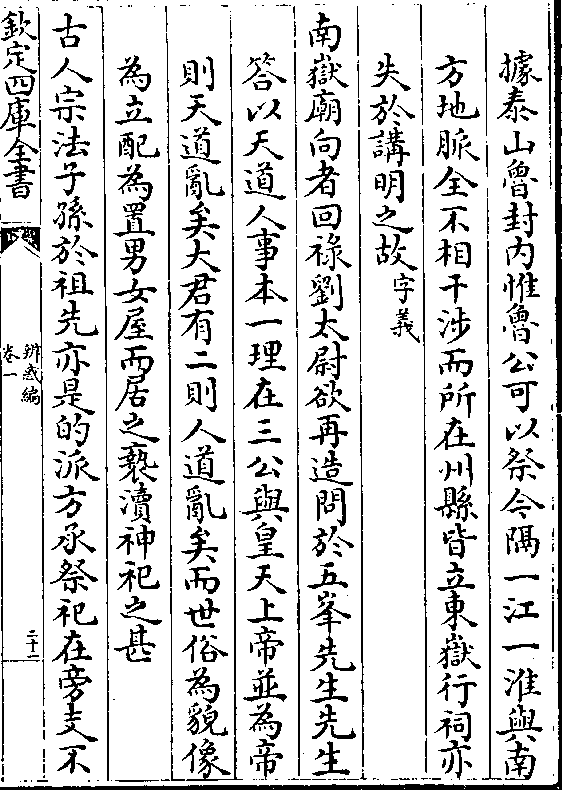 據泰山魯封内惟魯公可以祭今隔一江一淮與南
方地脈全不相干涉而所在州縣皆立東嶽行祠亦
失於講明之故字義
南嶽廟向者回祿劉太尉欲再造問於五峯先生先生
答以天道人事本一理在三公與皇天上帝並為帝
則天道亂矣大君有二則人道亂矣而世俗為貌像
為立配為置男女屋而居之褻瀆神祀之甚
古人宗法子孫於祖先亦是的派方承祭祀在旁支不
欽定四庫全書
辨惑編
卷一
二十一